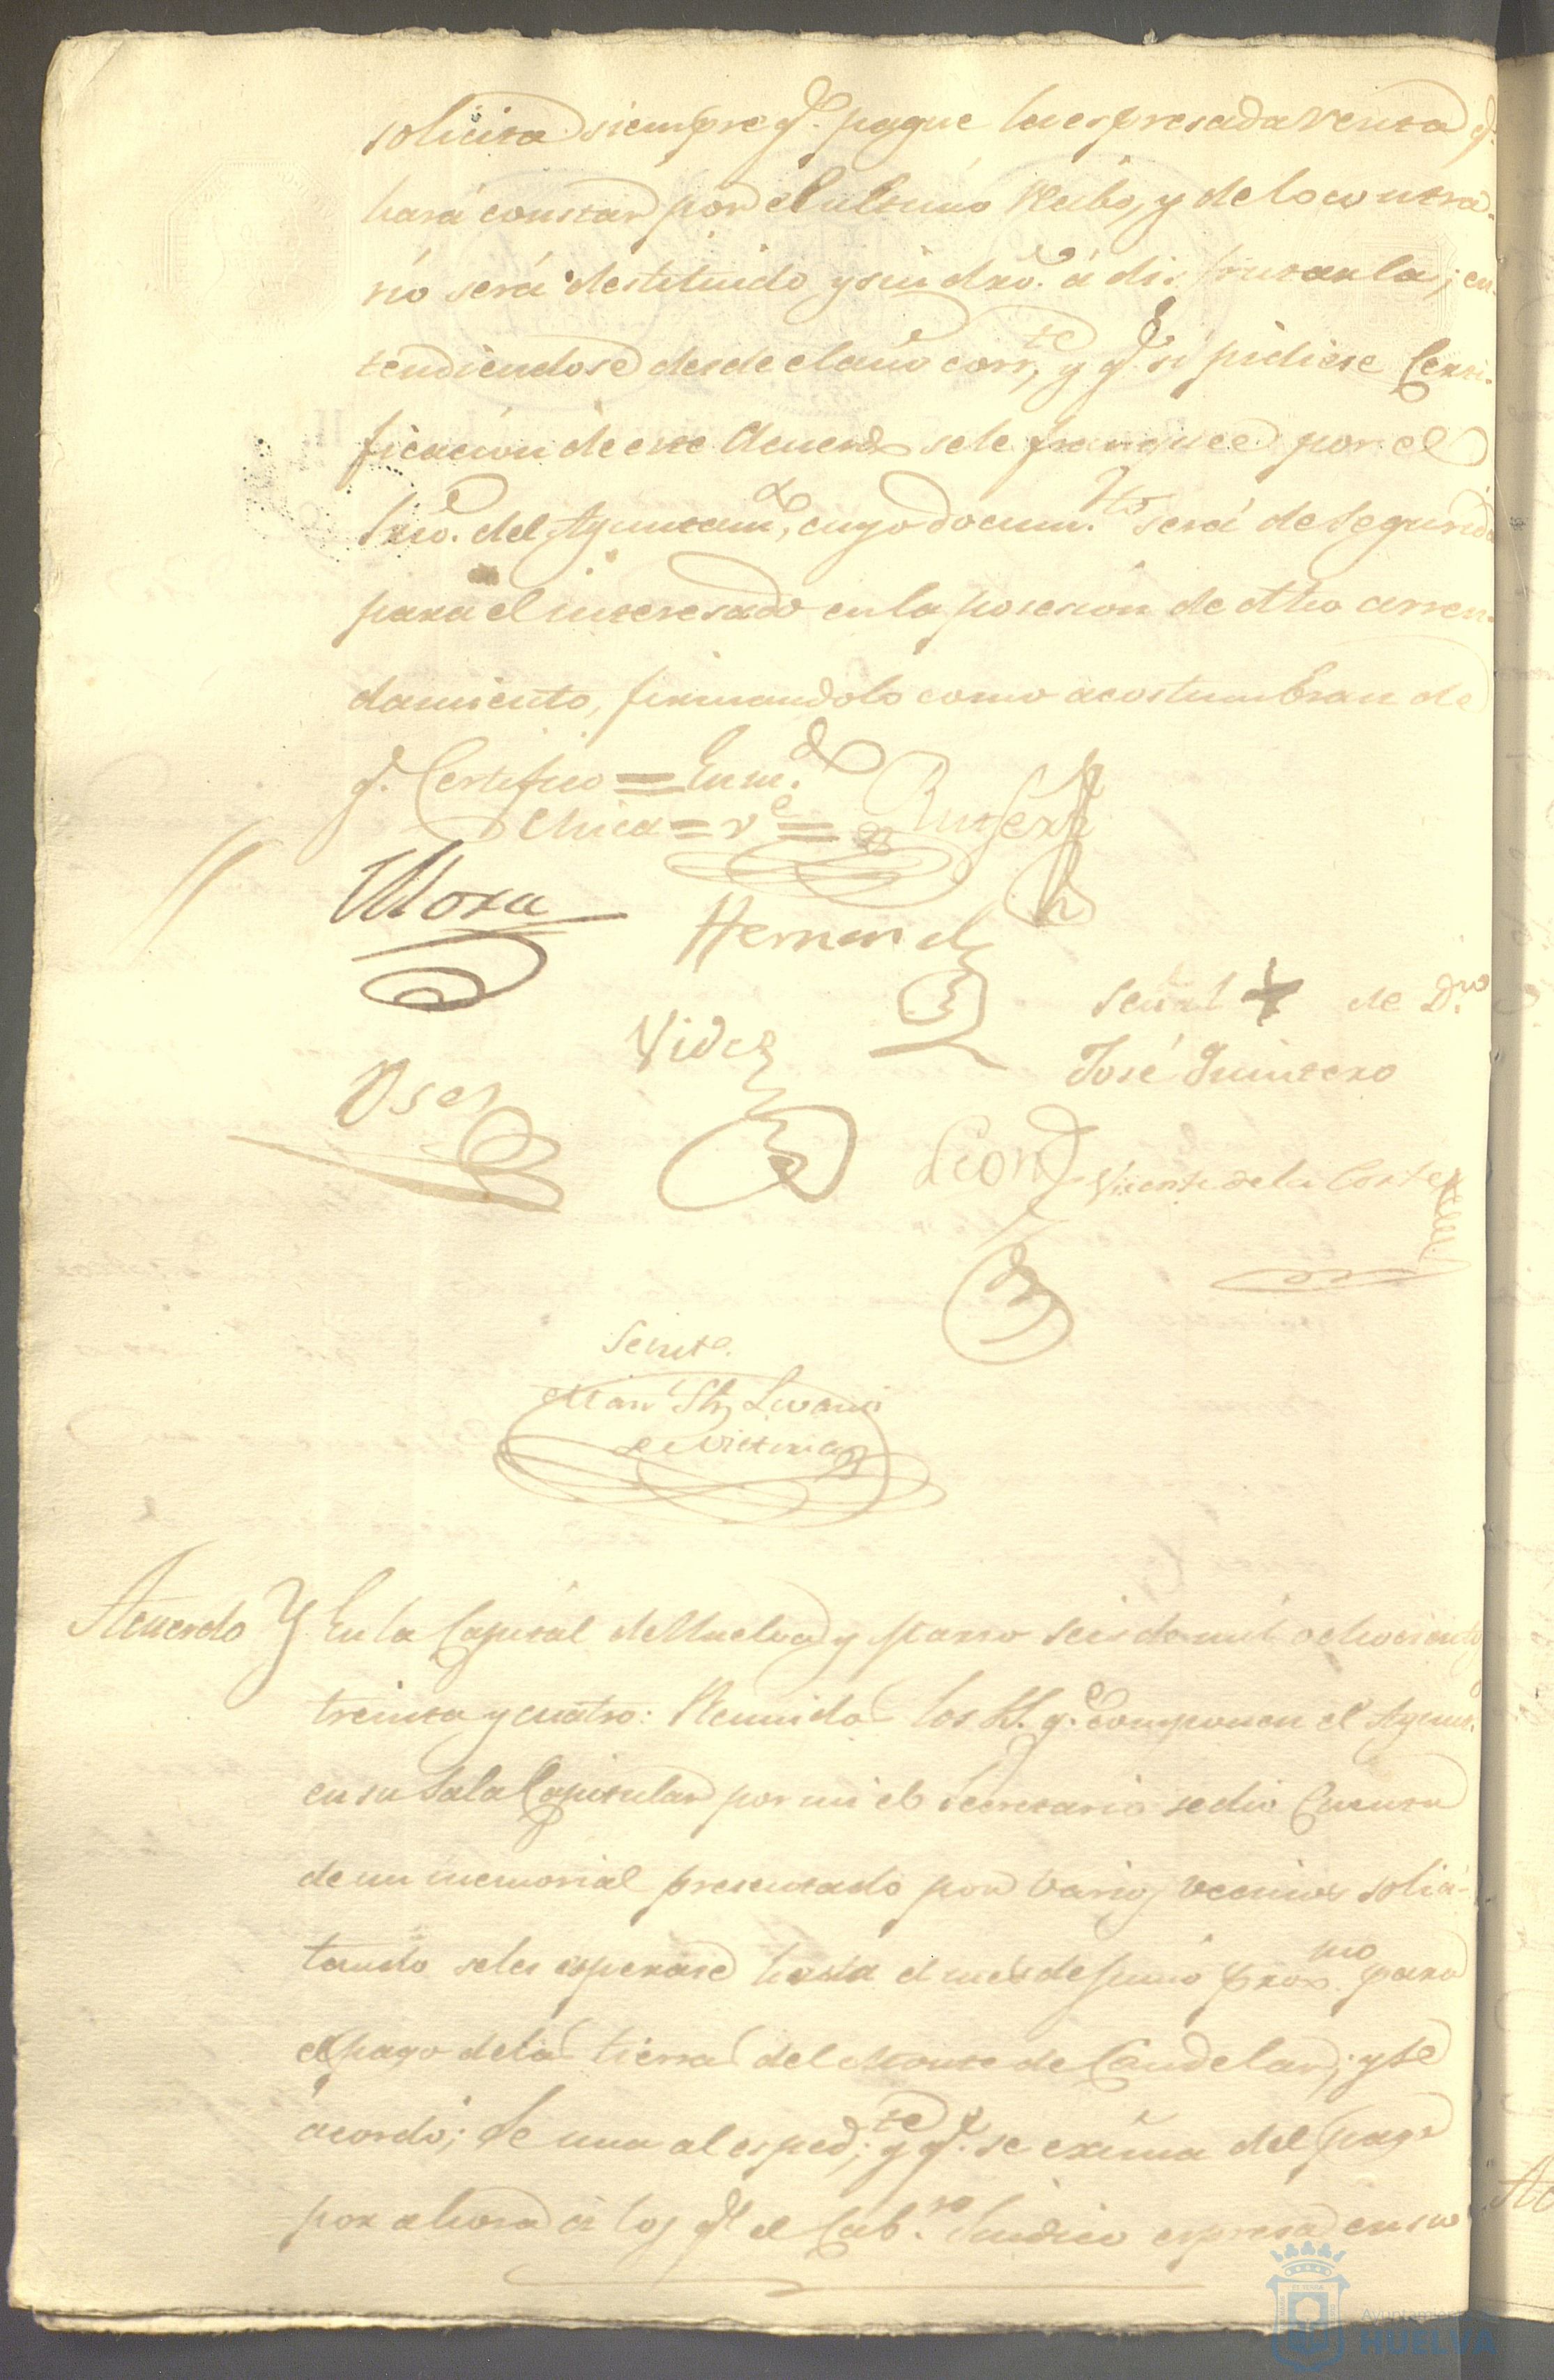 solicita siempre q.e pague la espresada renta q.e
hará constar por el ultimo recibo, y de lo contra-
rio será destituido y sin dro. á disfrutarla; en-
tendiendose desde el año corr.te, y q.e si pidiese Certi-
ficacion de este Acuerdo se le franquee por el
Srio. del Ayuntam.to, cuyo docum.to será de seguridad
para el interesado en la posesion de dho arren-
damiento, firmandolo como acostumbran de
q.e Certifico = Enm.do
Mora
Hernand
señal + de D.n
Videz
José Quintero
Leon
Vicente de la Corte
Man
de Victoria
Acuerdo En la Capital de Huelva y Marzo seis de mil ochocientos
treinta y cuatro: Reunidos los SS. q.e componen el Ayunt.
en su Sala Capitular por mi el Secretario se dio Cuenta
de un memorial presentado por varios vecinos solici-
tando se les esperase hasta el mes de Junio prox.mo para
el pago de las tierras del Monte de Candelar; y se
acordó; Se una al esped.te; y q.e se exima del pago
por ahora á los q.e el Cab.ro Sindico espresa en su
Ayuntamiento
HUELVA